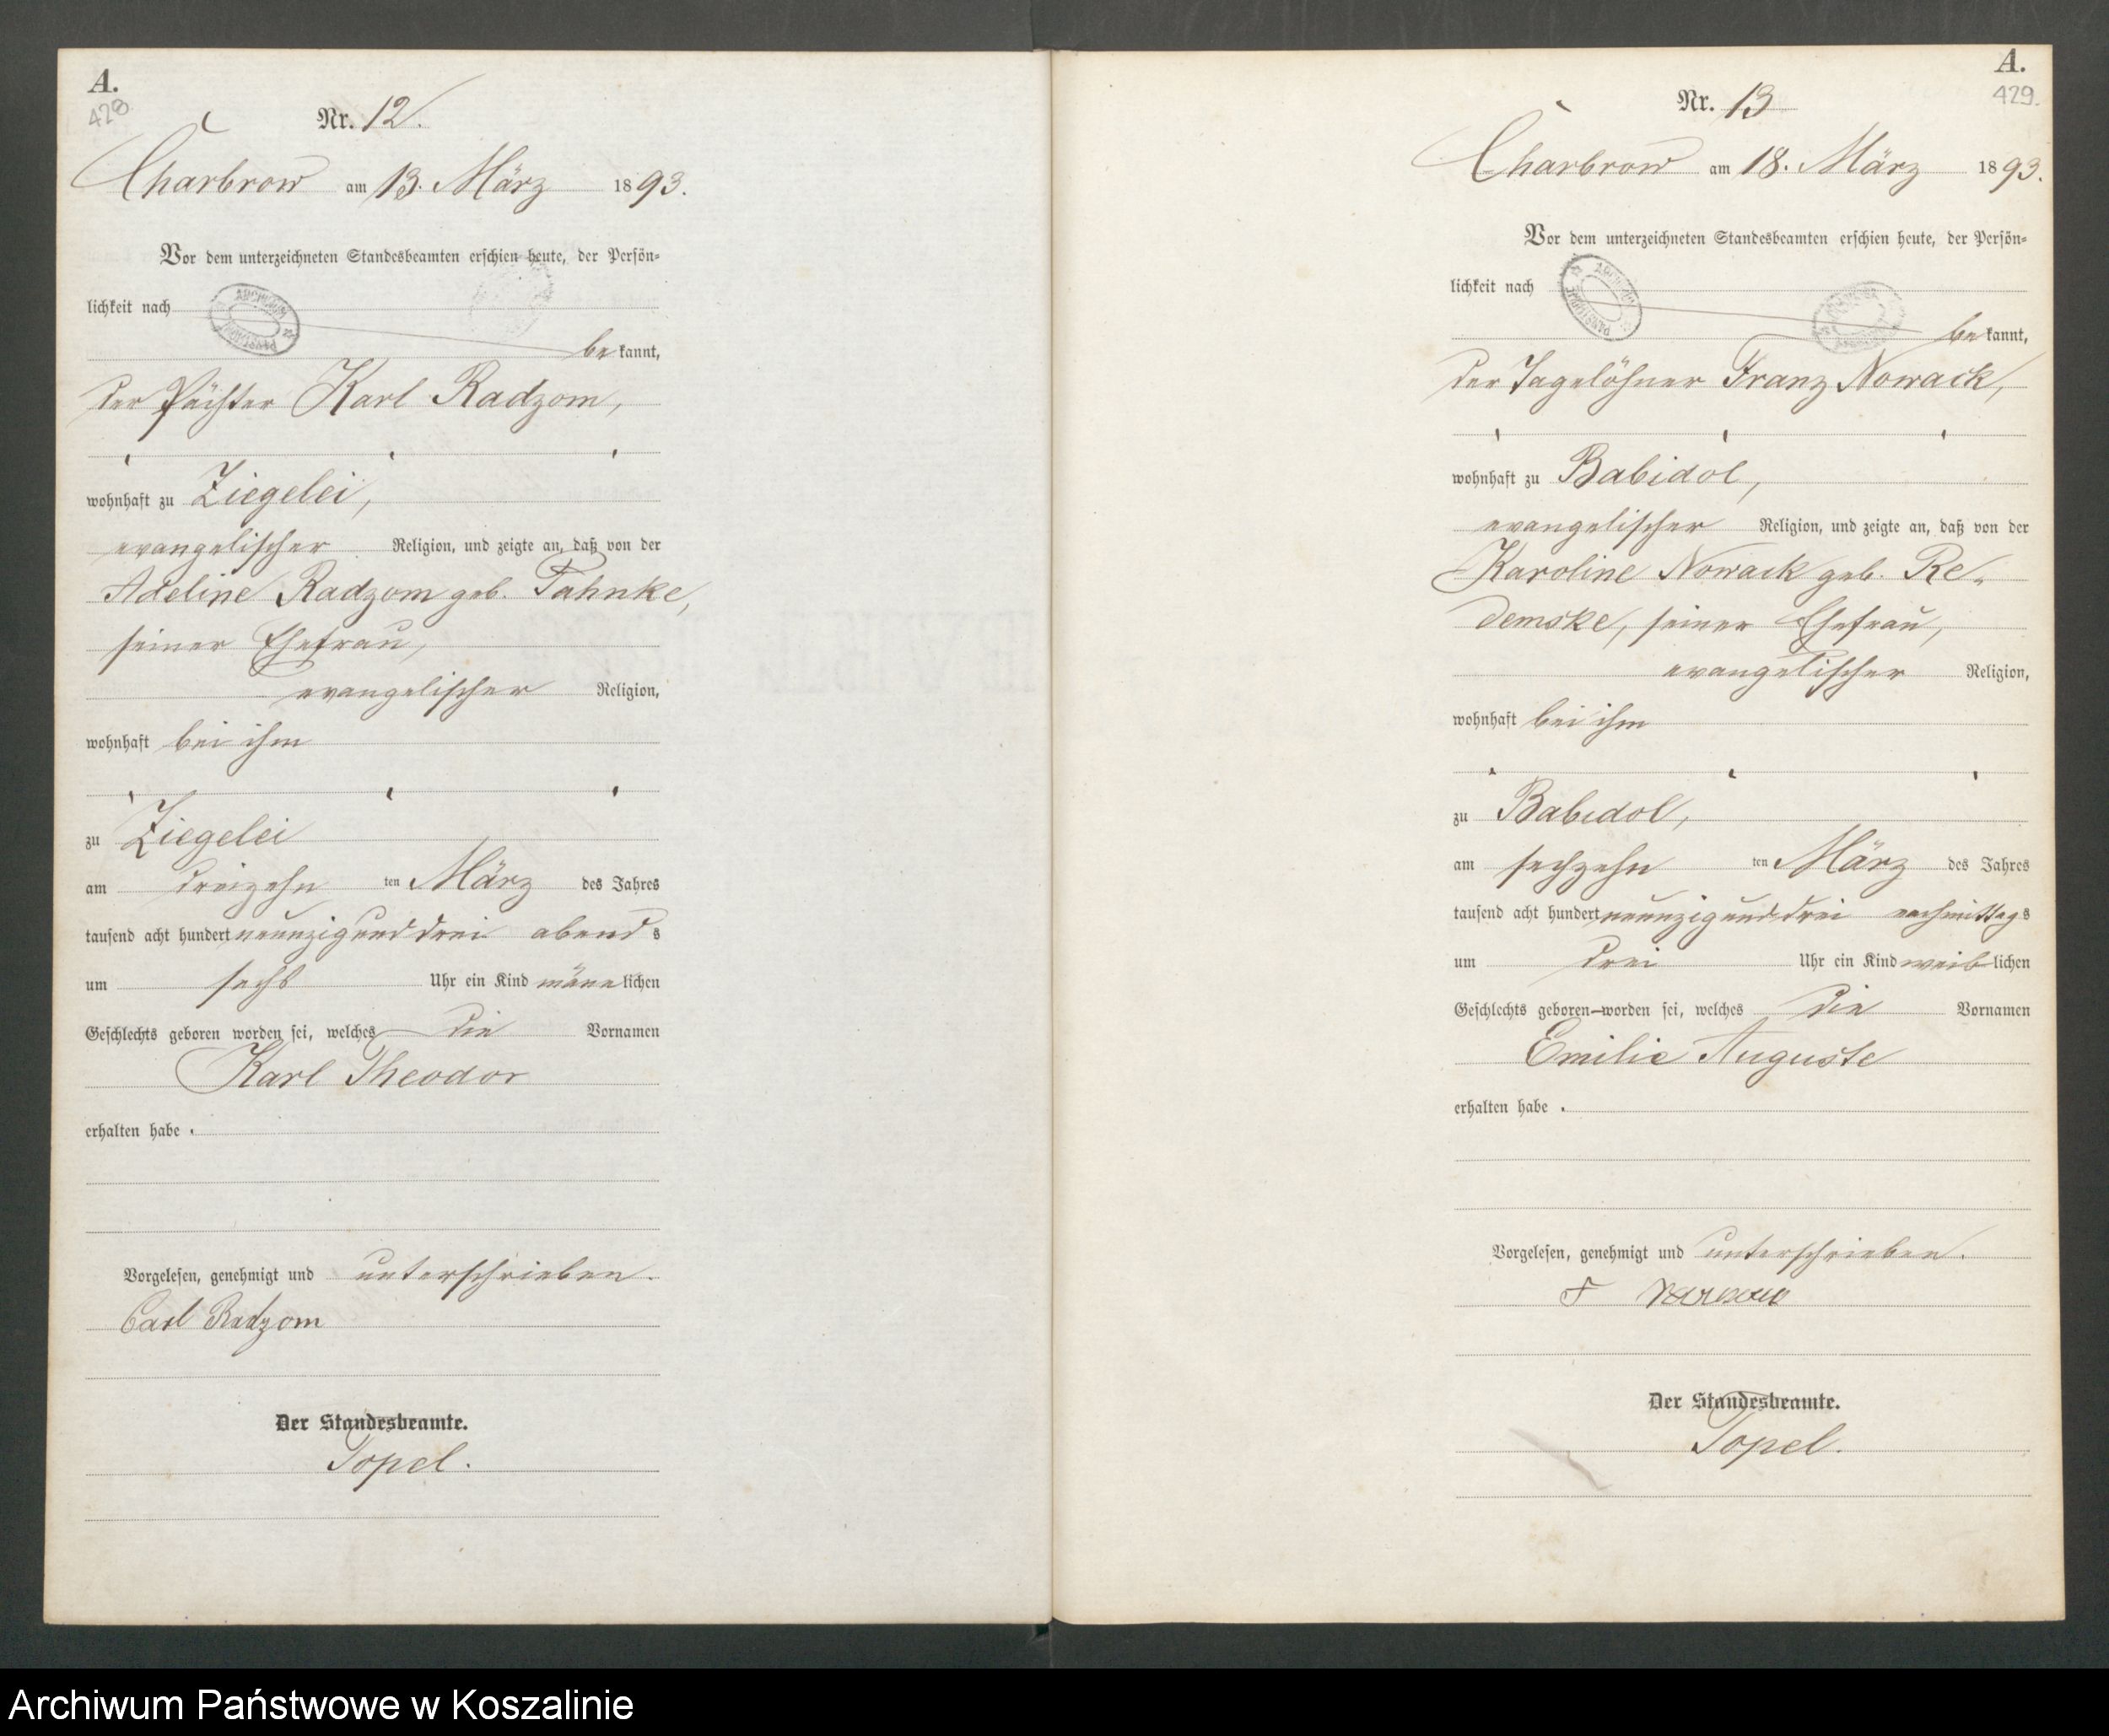 A.
428
Nr. 12.
Charbrow am 13. März 1893.
Vor dem unterzeichneten Standesbeamten erschien heute, der Persön-
lichkeit nach
bekannt,
der Pächter Karl Radzom,
wohnhaft zu Ziegelei,
evangelischer Religion, und zeigte an, daß von der
Adeline Radzom geb. Pahnke,
seiner Ehefrau,
evangelischer Religion,
wohnhaft bei ihm
zu Ziegelei
am dreizehn ten März des Jahres
tausend acht hundert neunzig und drei abends
um sechs Uhr ein Kind männlichen
Geschlechts geboren worden sei, welches die Vornamen
Karl Theodor
erhalten habe.
Vorgelesen, genehmigt und unterschrieben.
Carl Radzom
Der Standesbeamte.
Topel.
A.
429.
Nr. 13
Charbrow am 18. März 1893.
Vor dem unterzeichneten Standesbeamten erschien heute, der Persön-
lichkeit nach
bekannt,
der Tagelöhner Franz Nowack,
wohnhaft zu Babidol,
evangelischer Religion, und zeigte an, daß von der
Karoline Nowack geb. Re-
demske, seiner Ehefrau,
evangelischer Religion,
wohnhaft bei ihm
zu Babidol,
am sechzehn ten März des Jahres
tausend acht hundert neunzig und drei nachmittags
um drei Uhr ein Kind weiblichen
Geschlechts geboren worden sei, welches die Vornamen
Emilie Auguste
erhalten habe.
Vorgelesen, genehmigt und unterschrieben.
F
Der Standesbeamte.
Topel.
Archiwum Państwowe w Koszalinie